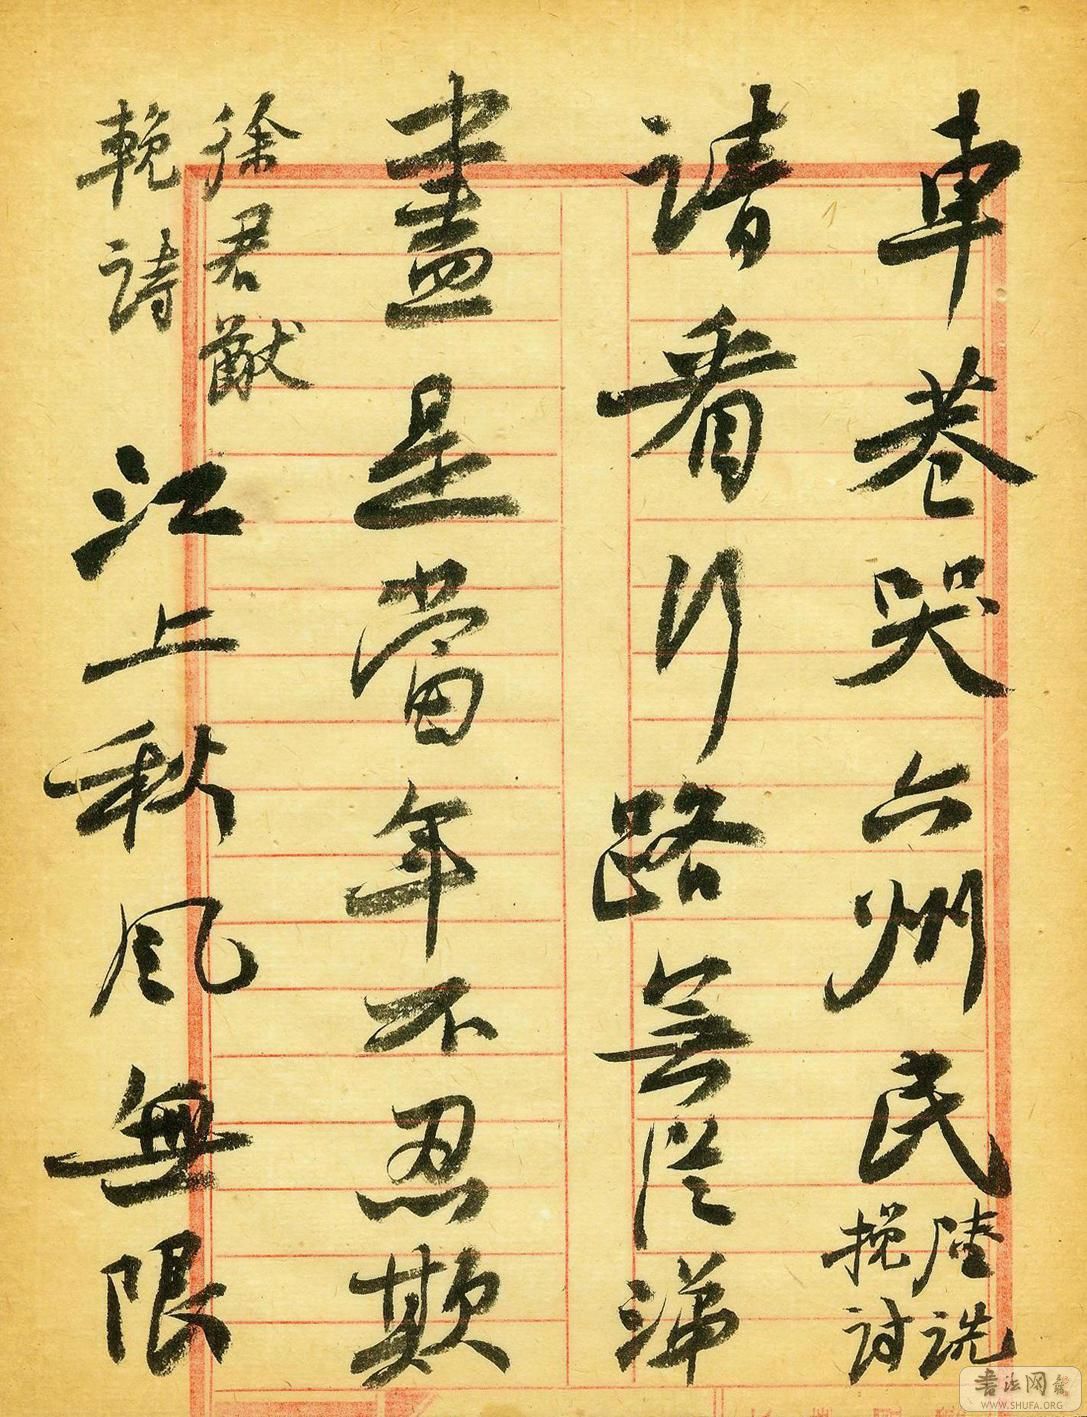 車巷哭六州民
陸詵
挽詩
請看行路無從涕
盡是當年不忍欺
徐君猷
輓詩
江上秋風無限
書法网
WWW.SHUFA.ORG